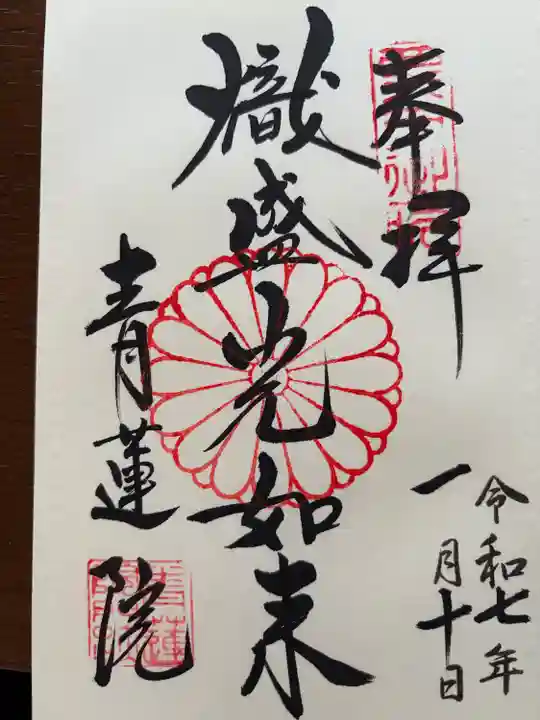 奉拝
令和七年
一月十日
熾盛光如来
青蓮院